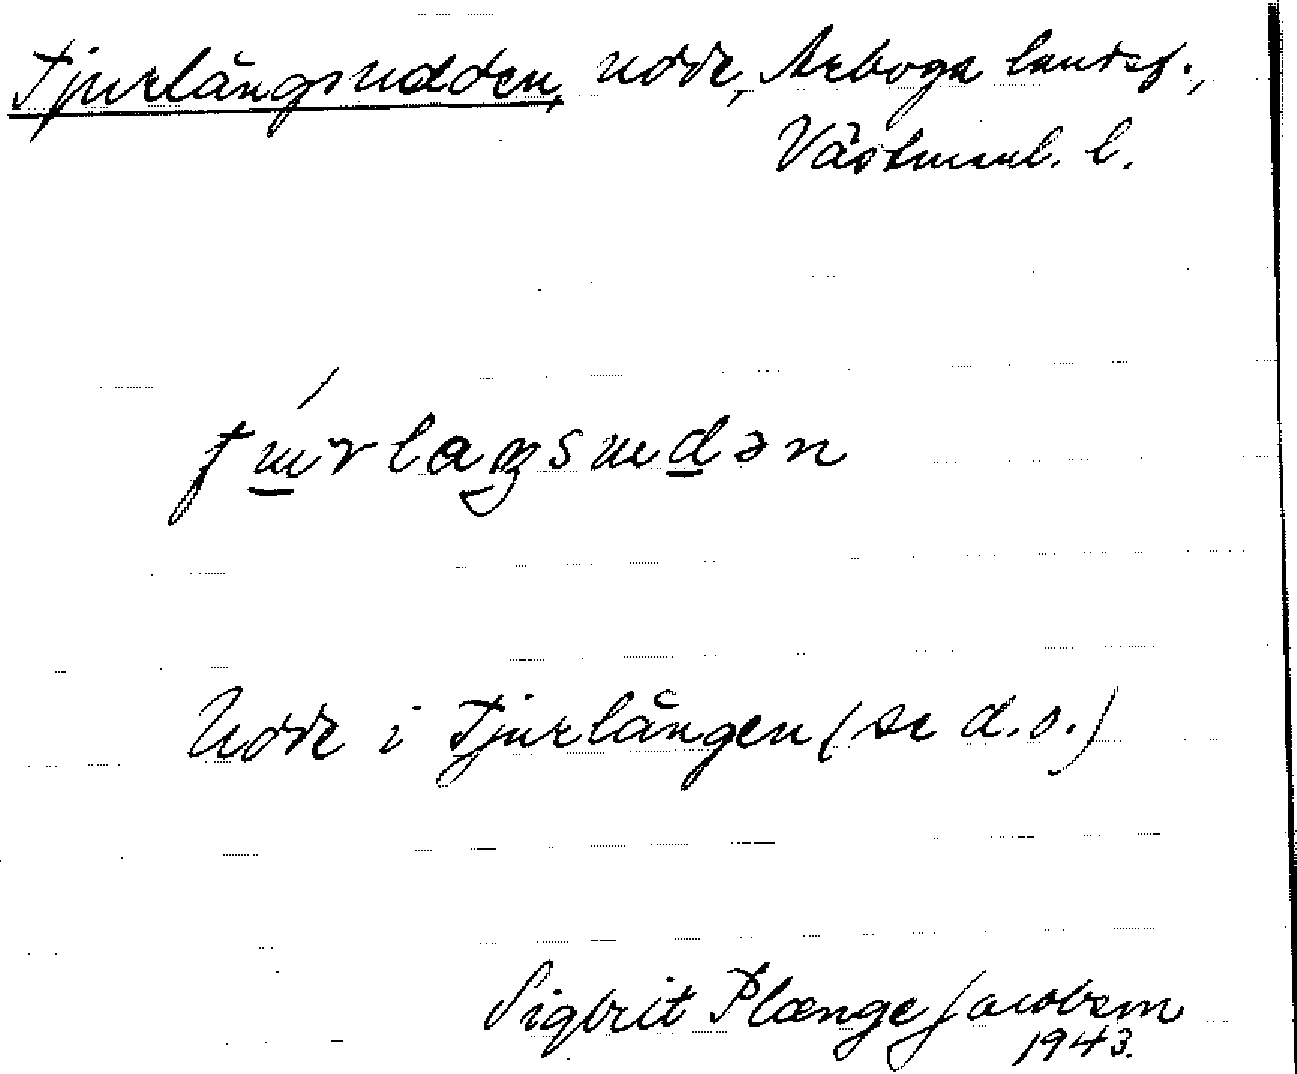 Tjurlångsudden, udde, Arboga landsf.,
Västmanl. l.
Udde i Tjurlången (se d.o.)
Sigbrit Plænge Jacobson
1943.